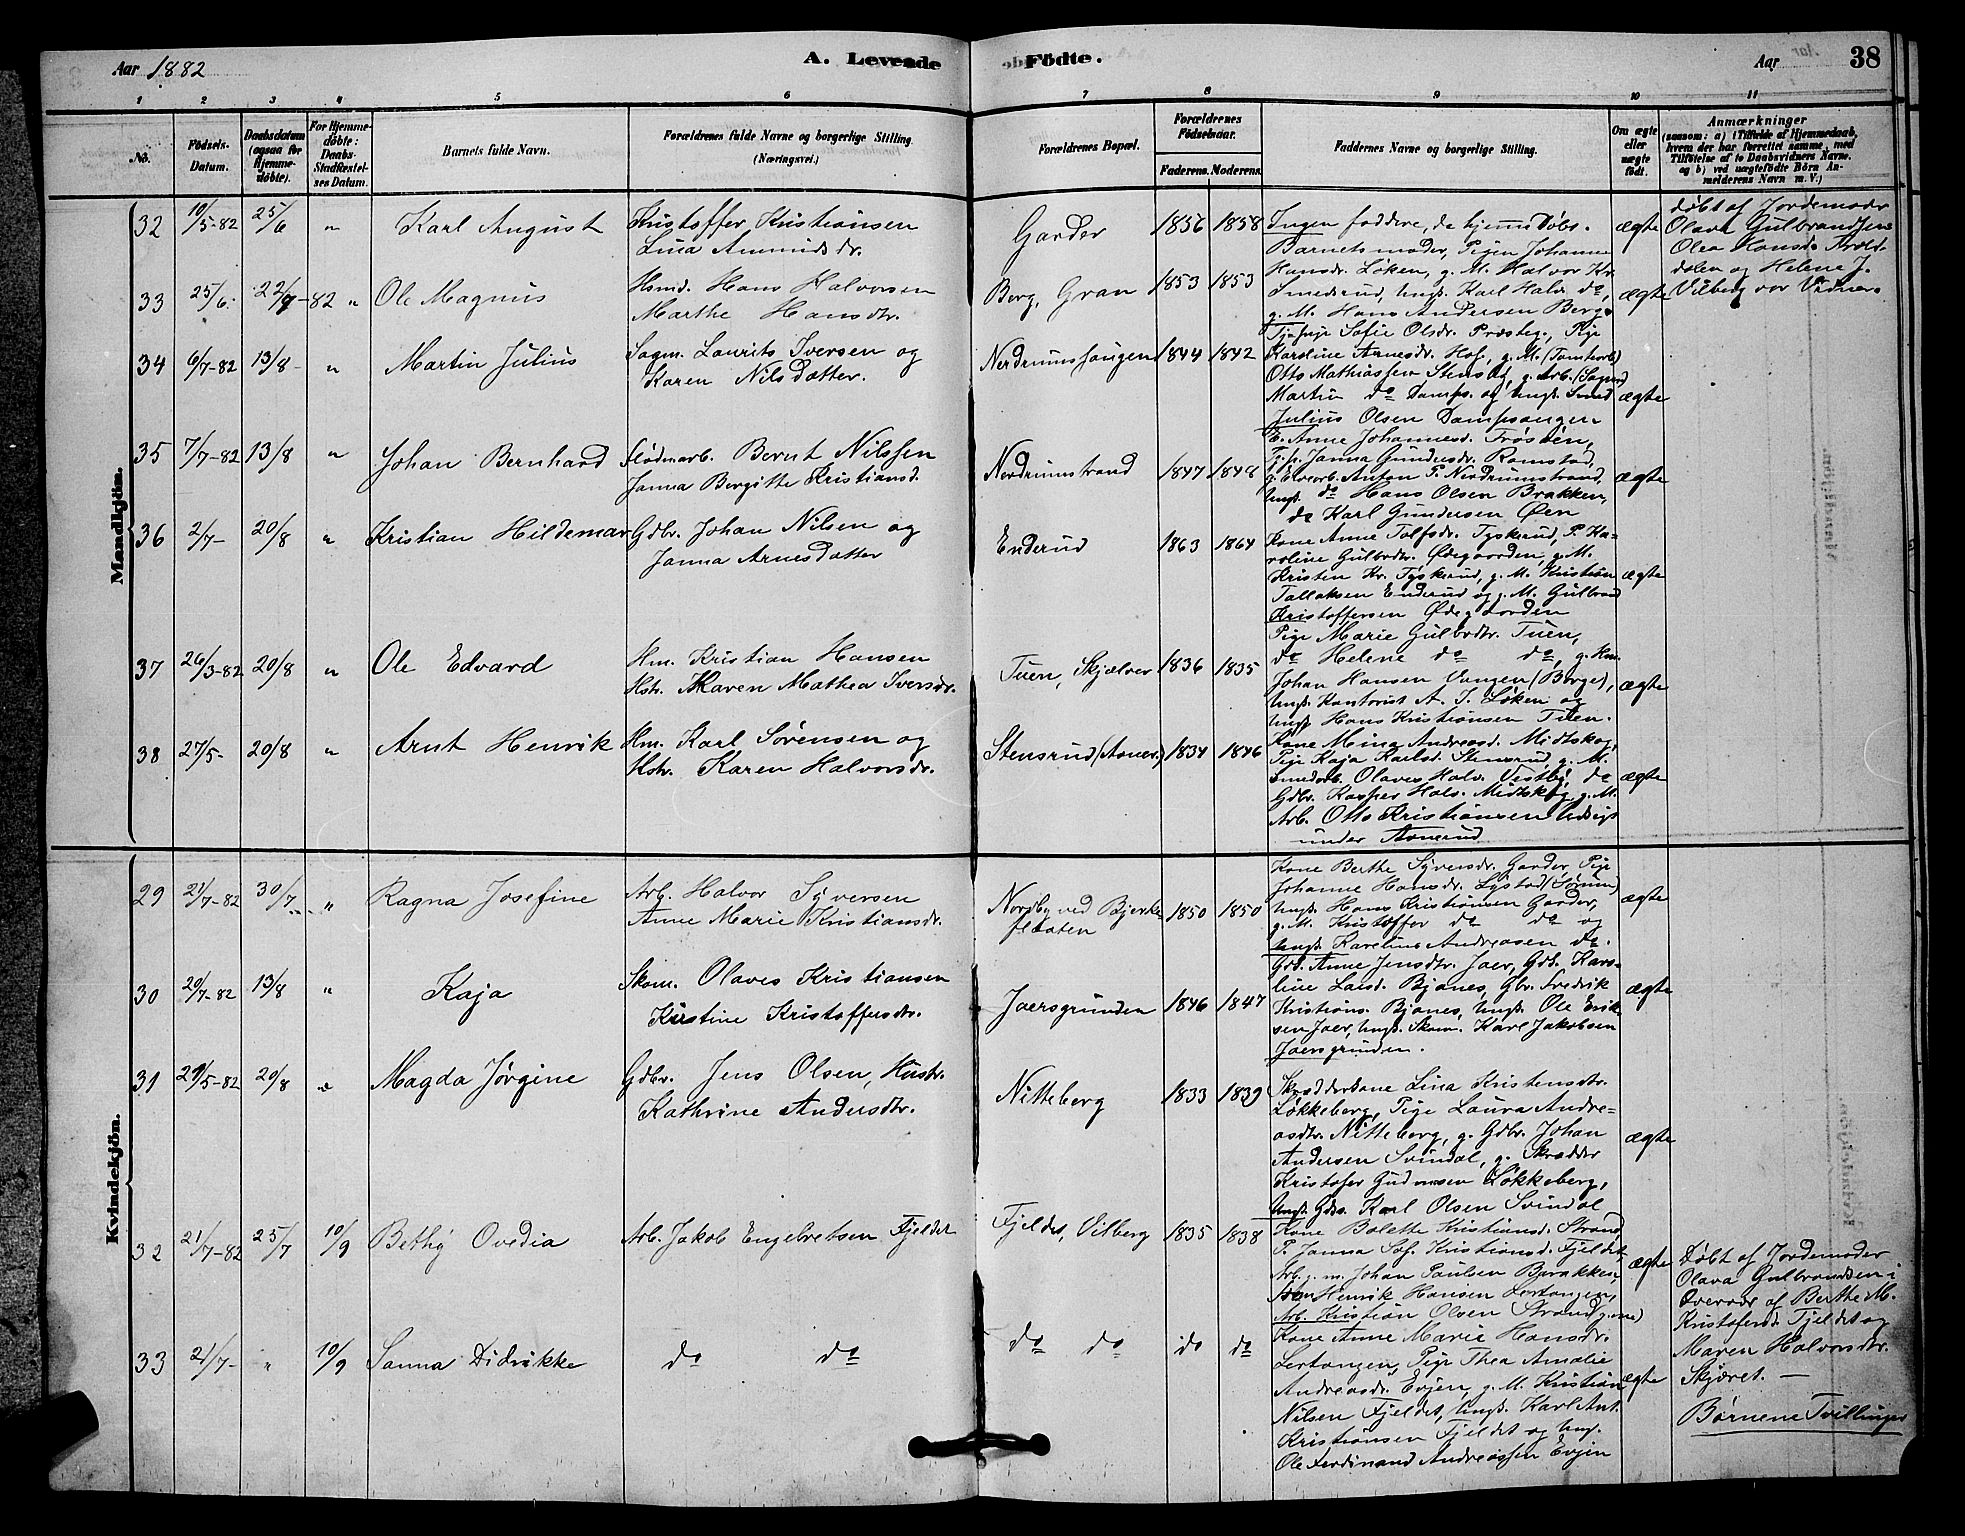 Aar 1882
A. Levende Födte.
Aar
38
1 2 3 4 5 6 7 8 9 10 11
No.
Födsels-Datum.
Daabsdatum (ogsaa for Hjemme-döbte).
For Hjemme-döbte: Daabs-Stadfæstel-ses Datum.
Barnets fulde Navn.
Forældrenes fulde Navne og borgerlige Stilling. (Næringsvei.)
Forældrenes Bopæl.
Forældrenes Födselsaar.
Faderens. Moderens.
Faddernes Navne og borgerlige Stilling.
Om ægte eller uægte födt.
Anmærkninger
(saasom: a) i Tilfælde af Hjemmedaab,
hvem der har forrettet samme, med
Tilföielse af to Daabsvidners Navne.
og b) ved uægtefödte Börn An-
melderens Navn m. V.)
Mandkjön.
32 10/5-82 25/6 " Karl August
Kristoffer Kristiansen
Lina Amundsdr.
Garder 1856 1858
Ingen faddere, da hjemmedøbt.
Barnets moder, Pigen Johanne
ægte
døbt af Jordemoder
Olava Gulbrandsen
Olea Hansd.
dalen og Helene J.
Vilberg var Vidner
33 25/6. 22/7-82 " Ole Magnus
Hsmd. Hans Halvorsen
Marthe Hansdtr.
Berg, Gran 1853 1853
Hansdr. Løken, g. M. Halvor Kr.
Smedsrud, Ungk. Karl Halv. do,
g. M. Hans Andersen Berg
ægte
34 6/7-82 13/8- " Martin Julius
Sagm. Laurits Iversen og
Karen Nilsdatter.
Nerdrumssaugen 1844 1842
Tj. pige Sofie Olsdr. Præsteg., Pige
Karoline Arnesdr. Hof, g. M. (Tomtearb)
Otto Mathiassen Stensby, g. Arb. (Sagmd)
Martin do Damps. og Ungk. Smed
Julius Olsen Dampsaugen
ægte
35 7/7-82 13/8 " Johan Bernhard
Flødmarb. Bernt Nilssen
Janna Bergitte Kristiansd.
Nerdrumstrand 1847 1848
E. Anne Johannesd. Trøsten,
Tj.p. Janna Gundersdr. Ramstad,
g. Elvearb. Anton P. Nerdrumstrand,
Ungk. do Hans Olsen Brakken,
do Karl Gundersen Øen
ægte
36 2/7- 20/8 " Kristian Hildemar
Gdbr. Johan Nilsen og
Janna Arnesdatter
Enderud 1863 1864
Kone Anne Tolfsdr. Tyskerud, P. Ka-
roline Gulbrdtr. Ødegaarden, g. M.
Kristen Kr. Tyskerud, g. M. Kristian
Tallaksen Enderud og g. M. Gulbrand
Kristoffersen Ødegaarden
ægte
37 26/3-82 20/8 " Ole Edvard
Hm. Kristian Hansen
Hstr. Maren Mathea Iversdr.
Tuen, Skjælver 1836 1835
Pige Marie Gulbrdtr. Tuen,
do Helene do do, g. Hm.
Johan Hansen Vangen (Borge),
Ungk. Kontorist A. J. Løken og
Ungk. Hans Kristiansen Tuen.
ægte
38 27/5- 20/8 " Arnt Henrik
Hm. Karl Sørensen og
Hstr. Karen Halvorsdr.
Stensrud (Asner.) 1834 1846
Kone Mina Andreasd. Midtskog,
Pige Kaja Karlsd. Stensrud, g. M.
Smedarb. Olaves Halv. Vestby, do
Gdbr. Kasper Halv. Midtskog, g. M.
Arb. Otto Kristiansen Udsigt
under Asnerud
ægte
Kvindekjön.
29 21/7-82 30/7 " Ragna Josefine
Arb. Halvor Syversen
Anne Marie Kristiansdr.
Nordby ved Bjerke
flaaten
1850 1850
Kone Berthe Syversdr. Garder, Pige
Johanne Hansdr. Lystad (Sørum)
Ungk. Hans Kristiansen Garder,
g. M. Kristoffer do do og
Ungk. Karelius Andreasen do.
ægte
30 20/7-82 13/8 " Kaja
Skom. Olaves Kristiansen
Kristine Kristoffersdr.
Jaersgrunden 1846 1847
Gdb. Anne Jensdtr. Jaer, Gdb. Karo-
line Larsd. Bjanes, Gbr. Fredrik
Kristians. Bjanes, Ungk. Ole Erik-
sen Jaer, Ungk. Skom. Karl Jakobsen
Jaersgrunden.
ægte
31 29/5-82 20/8 " Magda Jørgine
Gdbr. Jens Olsen, Hustr.
Kathrine Andersdtr.
Nitteberg 1833 1839
Skrædderkone Lina Kristensdtr.
Løkkeberg, Pige Laura Andre-
asdtr. Nitteberg, g. Gdbr. Johan
Andersen Svindal, g. Skrædder
Kristofer Gudmsen Løkkeberg,
Ungk. Gdbs. Karl Olsen Svindal
ægte
32 21/7-82 25/7 10/9 Bethy Ovedia
Arb. Jakob Engebretsen Fjeldet
Fjeldet, Vilberg 1835 1838
Kone Bolette Kristiansd. Strand,
P. Janna Sof. Kristiansd. Fjeldet
Arb. g. m. Johan Paulsen Brakken,
Henrik Hansen Lertangen,
Arb. Kristian Olsen Strand
ægte
Døbt af Jordemoder
Olava Gulbrandsen i
Overvær af Berthe M.
Kristofersd. Fjeldet og
Maren Halvorsdtr.
Skjæret. —
Børnene Tvillinger
33 21/7- " 10/9 Sanna Didrikke
do do
do do do do
Kone Anne Marie Hansdr.
Lertangen, Pige Thea Amalie
Andreasdr. Evjen, g. M. Kristian
Nilsen Fjeldet, Ungk. Karl Ant.
Kristiansen Fjeldet og Ung.
Ole Ferdinand Andreassen Evjen
ægte